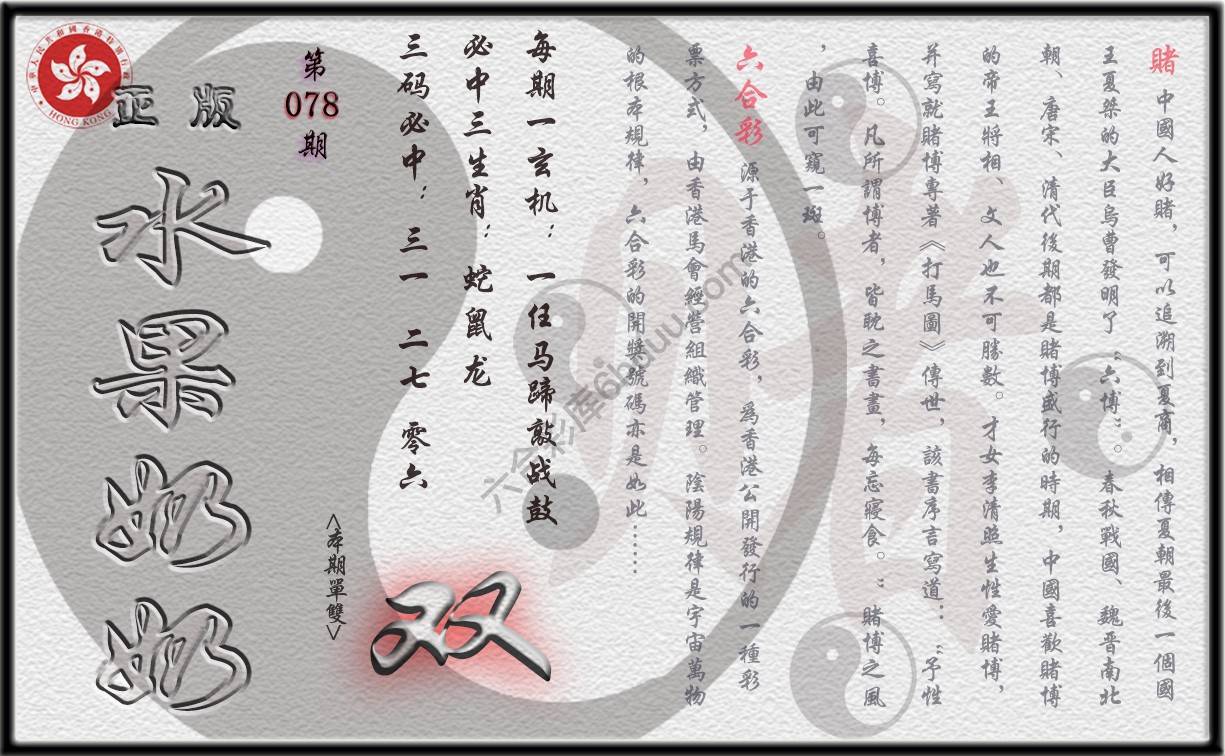 賭 中國人好賭，可以追溯到夏商，相傳夏朝最後一個國
王夏桀的大臣烏曹發明了“六博”。春秋戰國、魏晉南北
朝、唐宋、清代後期都是賭博盛行的時期，中國喜歡賭博
的帝王將相、文人也不可勝數。才女李清照生性愛賭博，
并寫就賭博專著《打馬圖》傳世，該書序言寫道：“予性
喜博。凡所謂博者，皆耽之書畫，每忘寢食。”賭博之風
，由此可窺一斑。
六合彩 源于香港的六合彩，為香港公開發行的一種彩
票方式，由香港馬會經營組織管理。陰陽規律是宇宙萬物
的根本規律，六合彩的開獎號碼亦是如此……
每期一玄机：一任马蹄敲战鼓
必中三生肖：蛇鼠龙
三码必中：三一 二七 零六
第
078
期
<本期單雙>
双
正版
水果奶奶
中華人民共和國香港特別行政區
HONG KONG
六合彩库6hduu.com